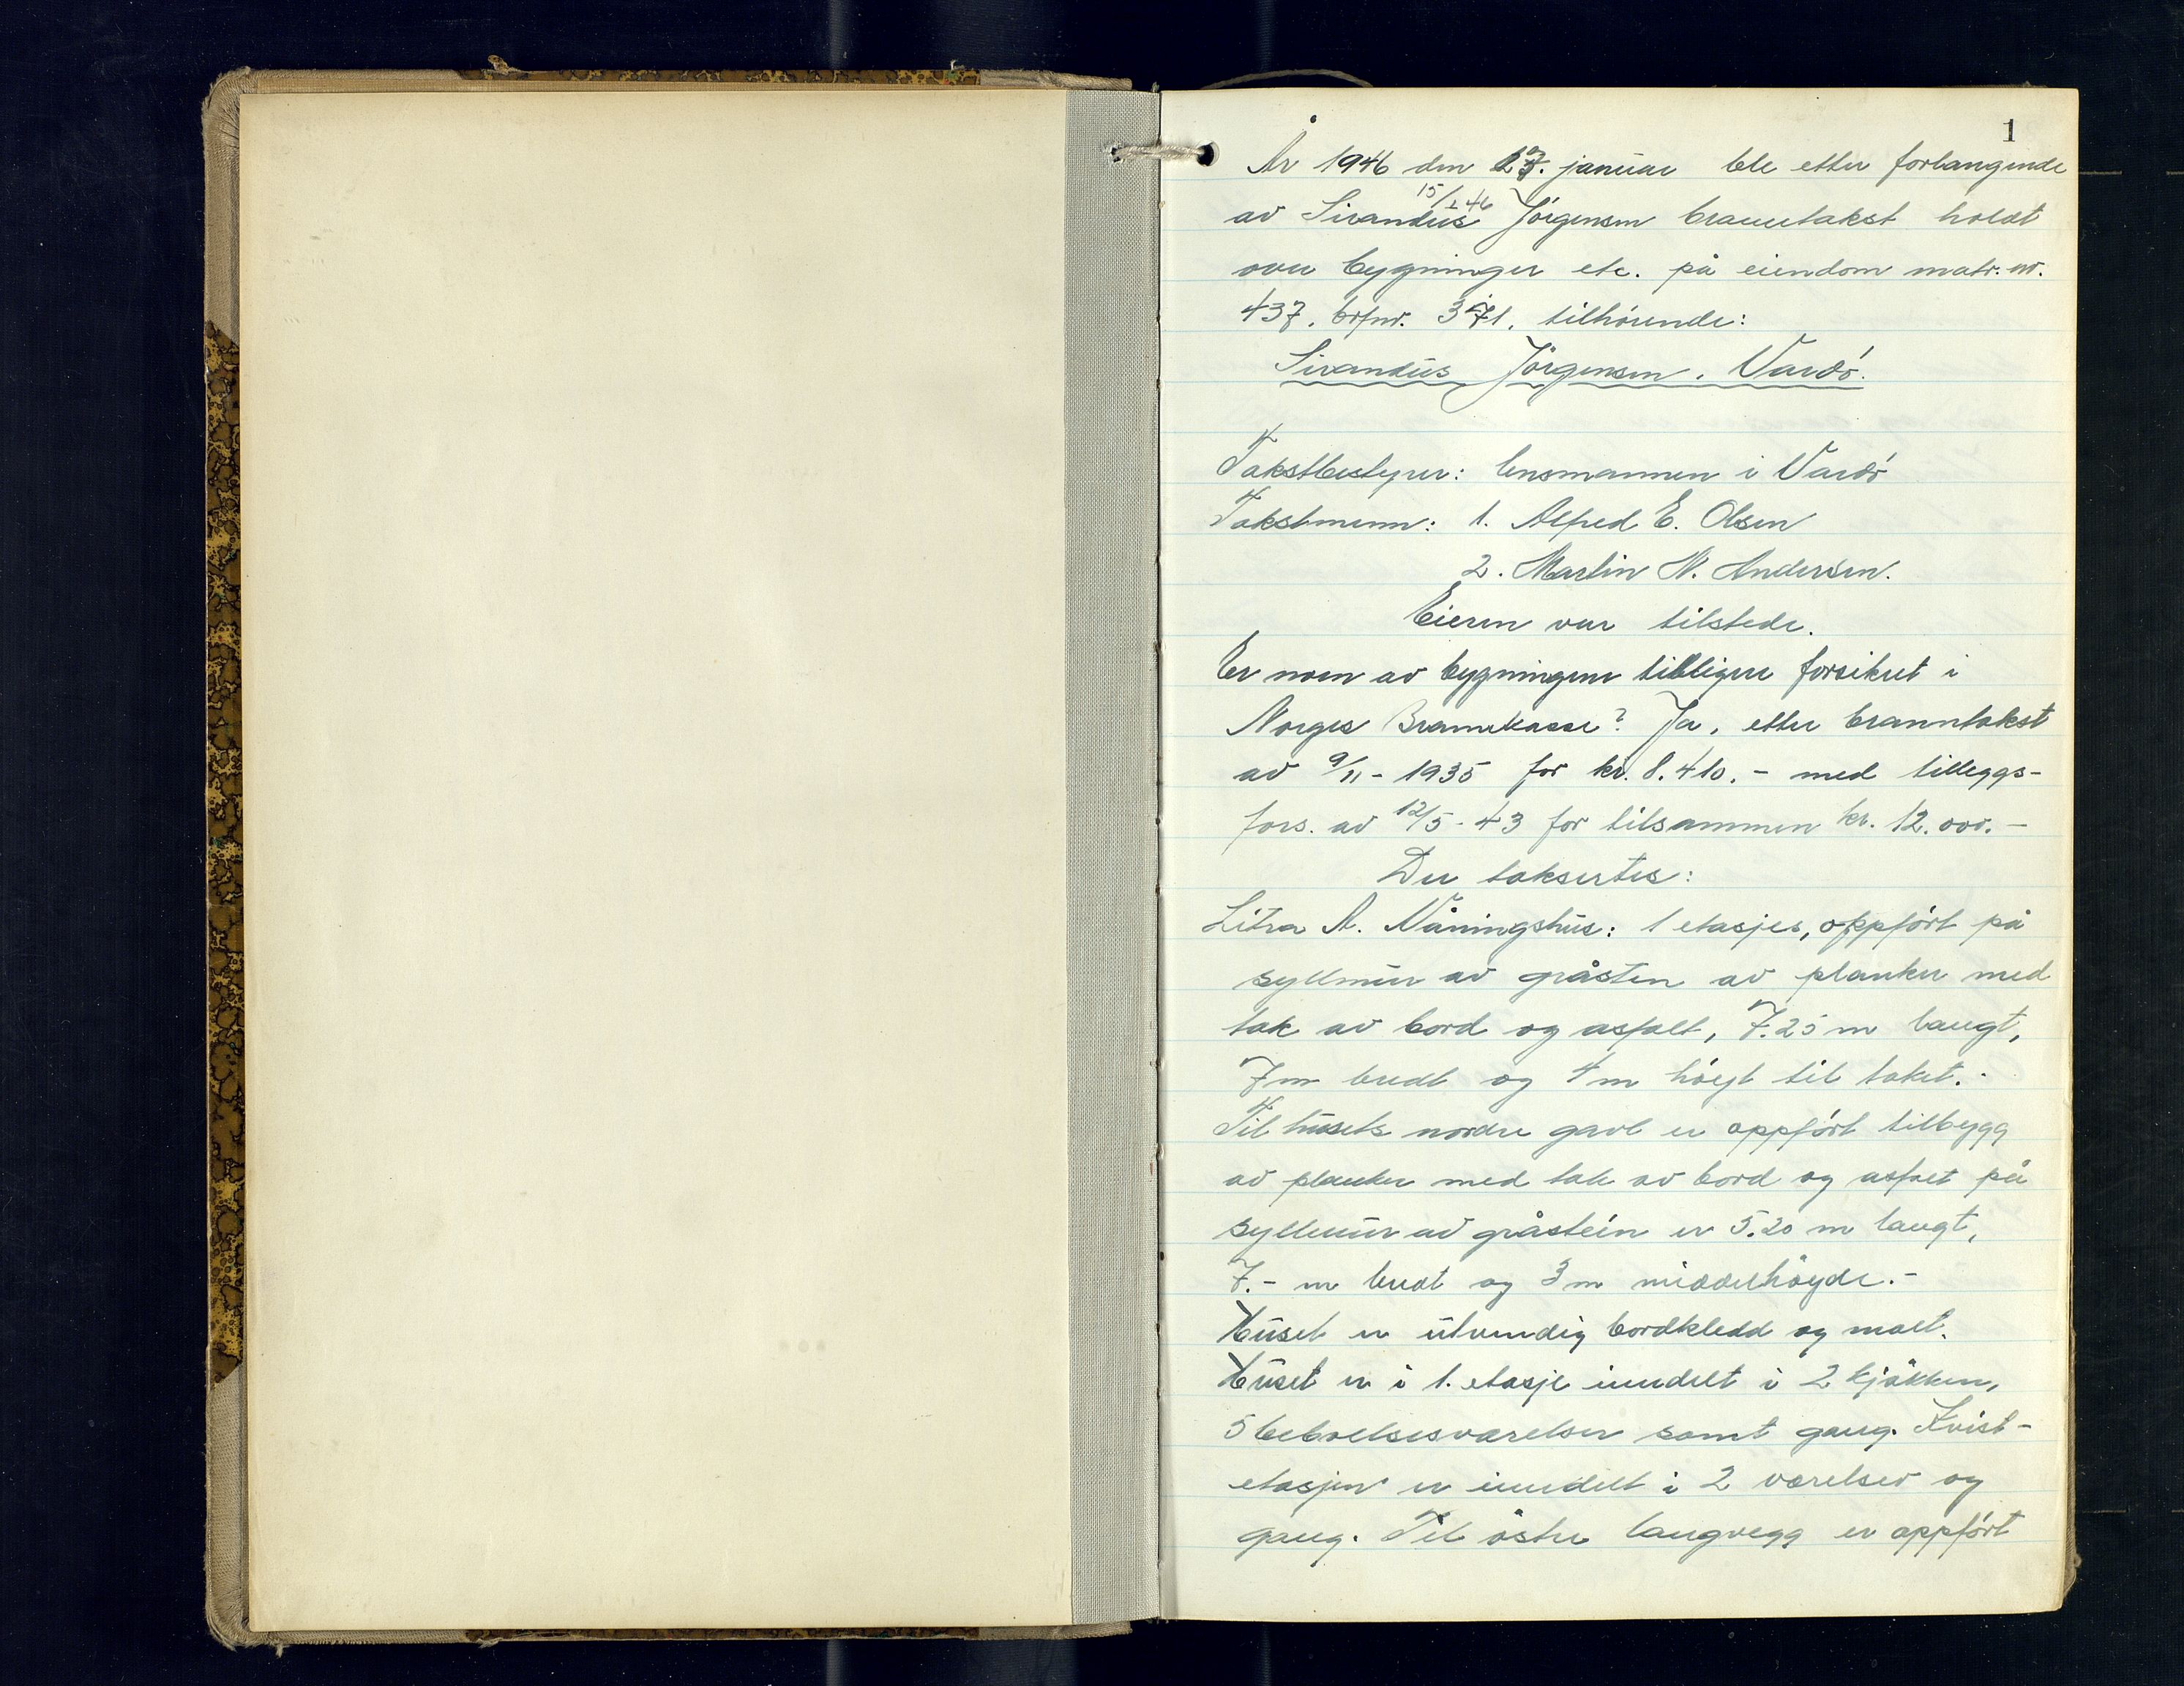 1
År 1946 den januar ble etter forlangende
av Sivandus 15/1 46 Jörgensen branntakst holdt
over bygninger etc. på eiendom matr. nr.
437, brfnr. tilhörende:
Sivandus Jörgensen, Vardö.
Takstbestyrer: lensmannen i Vardö
Takstmenn: 1. Alfred E. Olsen
2. Martin N. Andersen.
Eieren var tilstede.
Er noen av bygningene tidligere forsikret i
Norges Brannkasse? Ja, etter branntakst
av 9/11 - 1935 for kr. 8.410.- med tilleggs-
fors. av 12/5 - 43 for tilsammen kr. 12.000.-
Der taksertes:
Litra A. Våningshus: 1 etasjes, oppfört på
syllmur av gråsten av planker med
tak av bord og asfalt, 7.25 m langt,
7 m bredt og 4 m höyt til taket.-
Til husets nordre gavl er oppfört tilbygg
av planker med tak av bord og asfalt på
syllmur av gråstein er 5.20 m langt,
7.- m bredt og 3 m middelhöyde.-
Huset er utvendig bordkledd og malt.
Huset er i 1. etasje inndelt i 2 kjökken,
5 beboelsesværelser samt gang. Kvist-
etasjen er inndelt i 2 værelser og
gang. Til östre langvegg er oppfört